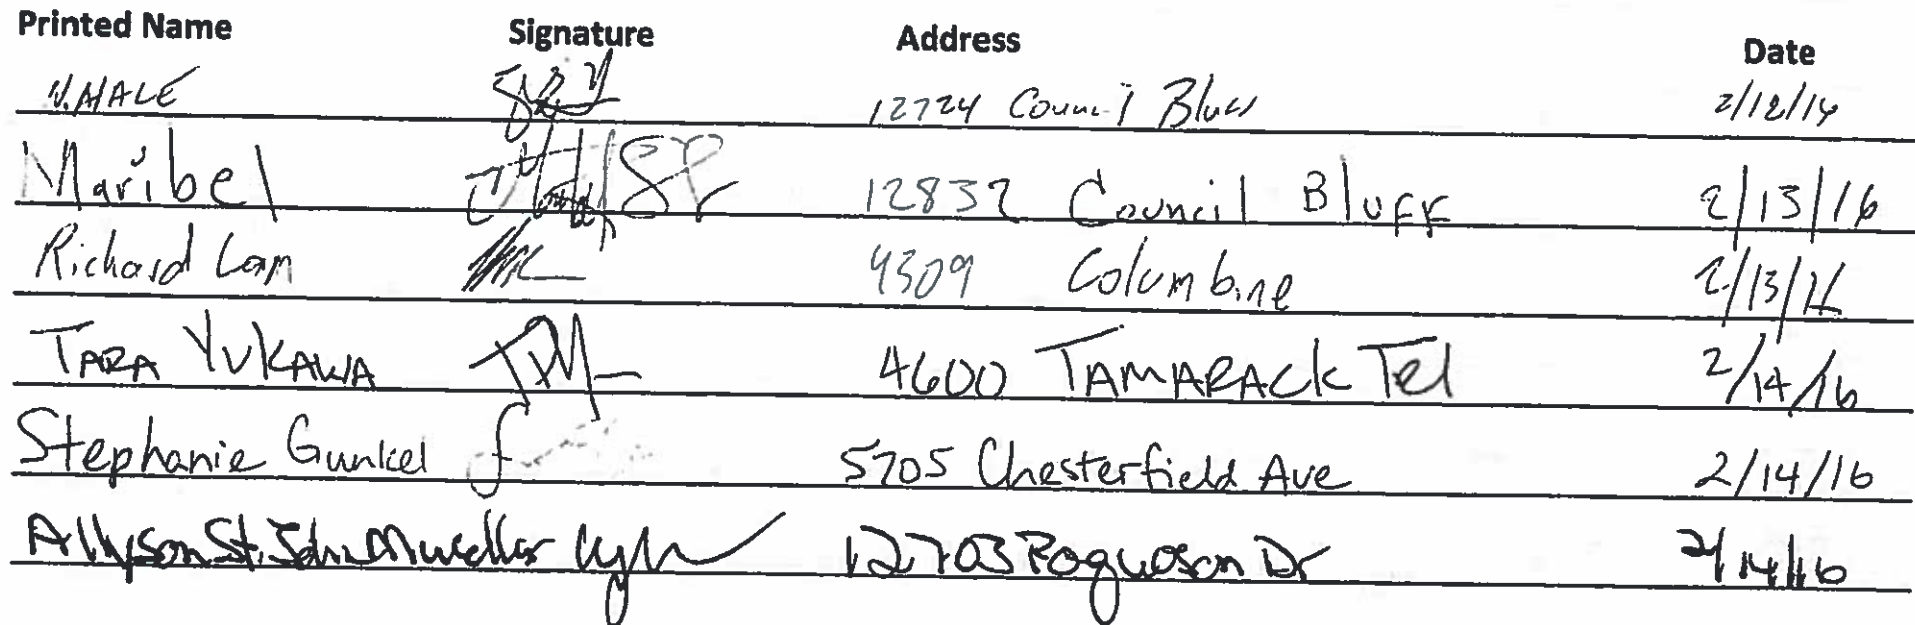 Printed Name Signature Address Date
12724 Council 2/12/16
Maribel 12832 Council Bluff 2/13/16
Richard Lam 4309 Columbine 2/13/16
TARA YUKAWA 4600 TAMARACK Trl 2/14/16
Stephanie Gunkel 5705 Chesterfield Ave 2/14/16
Allyson St. John Mueller 12703 Poquoson Dr 2/14/16